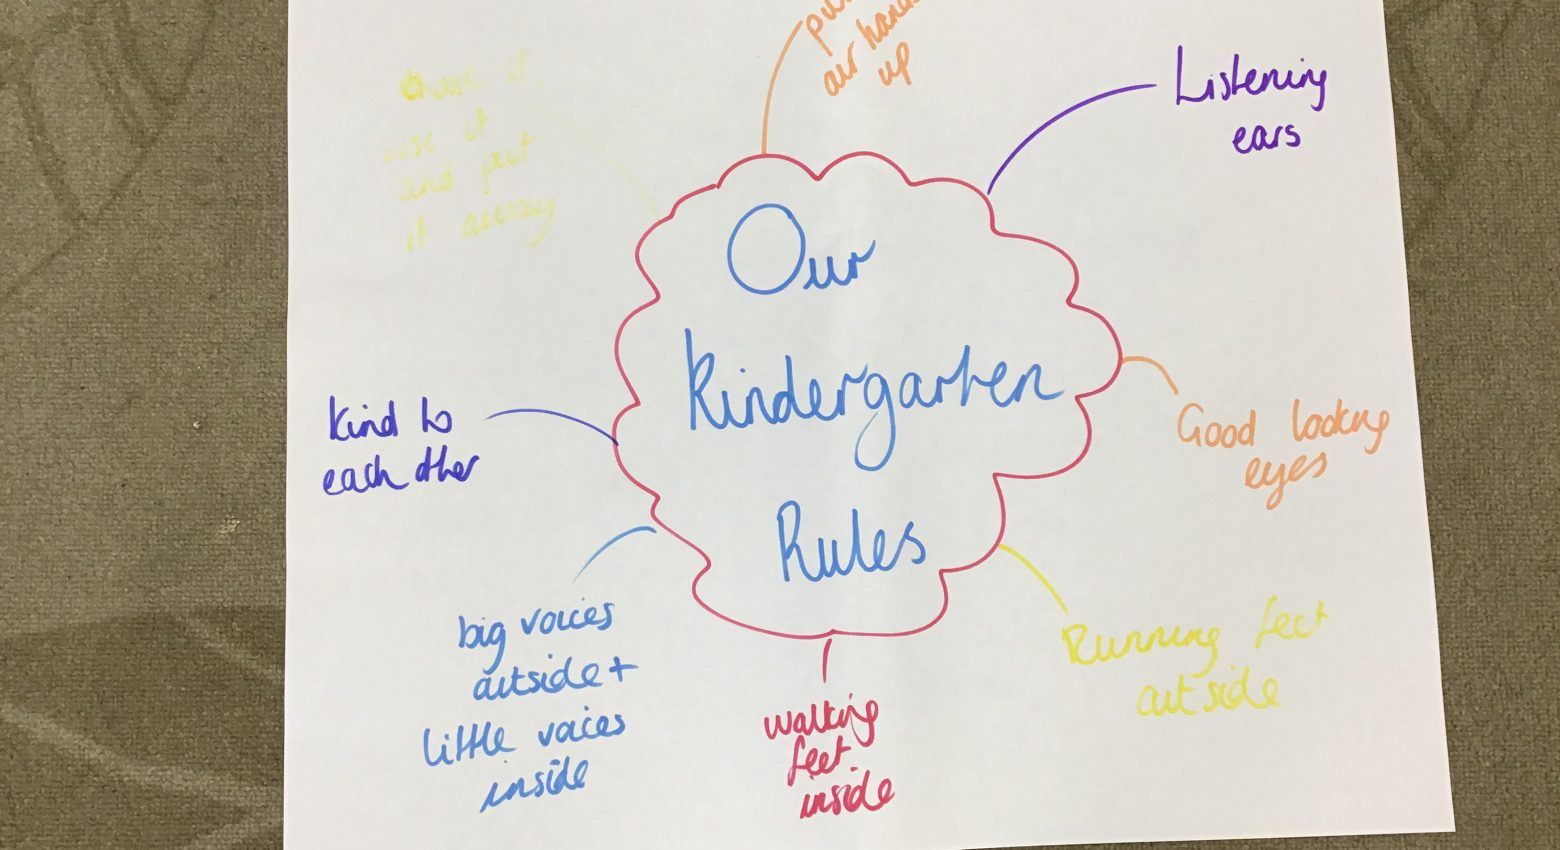 Our
Kindergarten
Rules
our hands
up
Listening
ears
Good looking
eyes
Running feet
outside
walking
feet
inside
big voices
outside +
little voices
inside
kind to
each other
use it
and put
it away